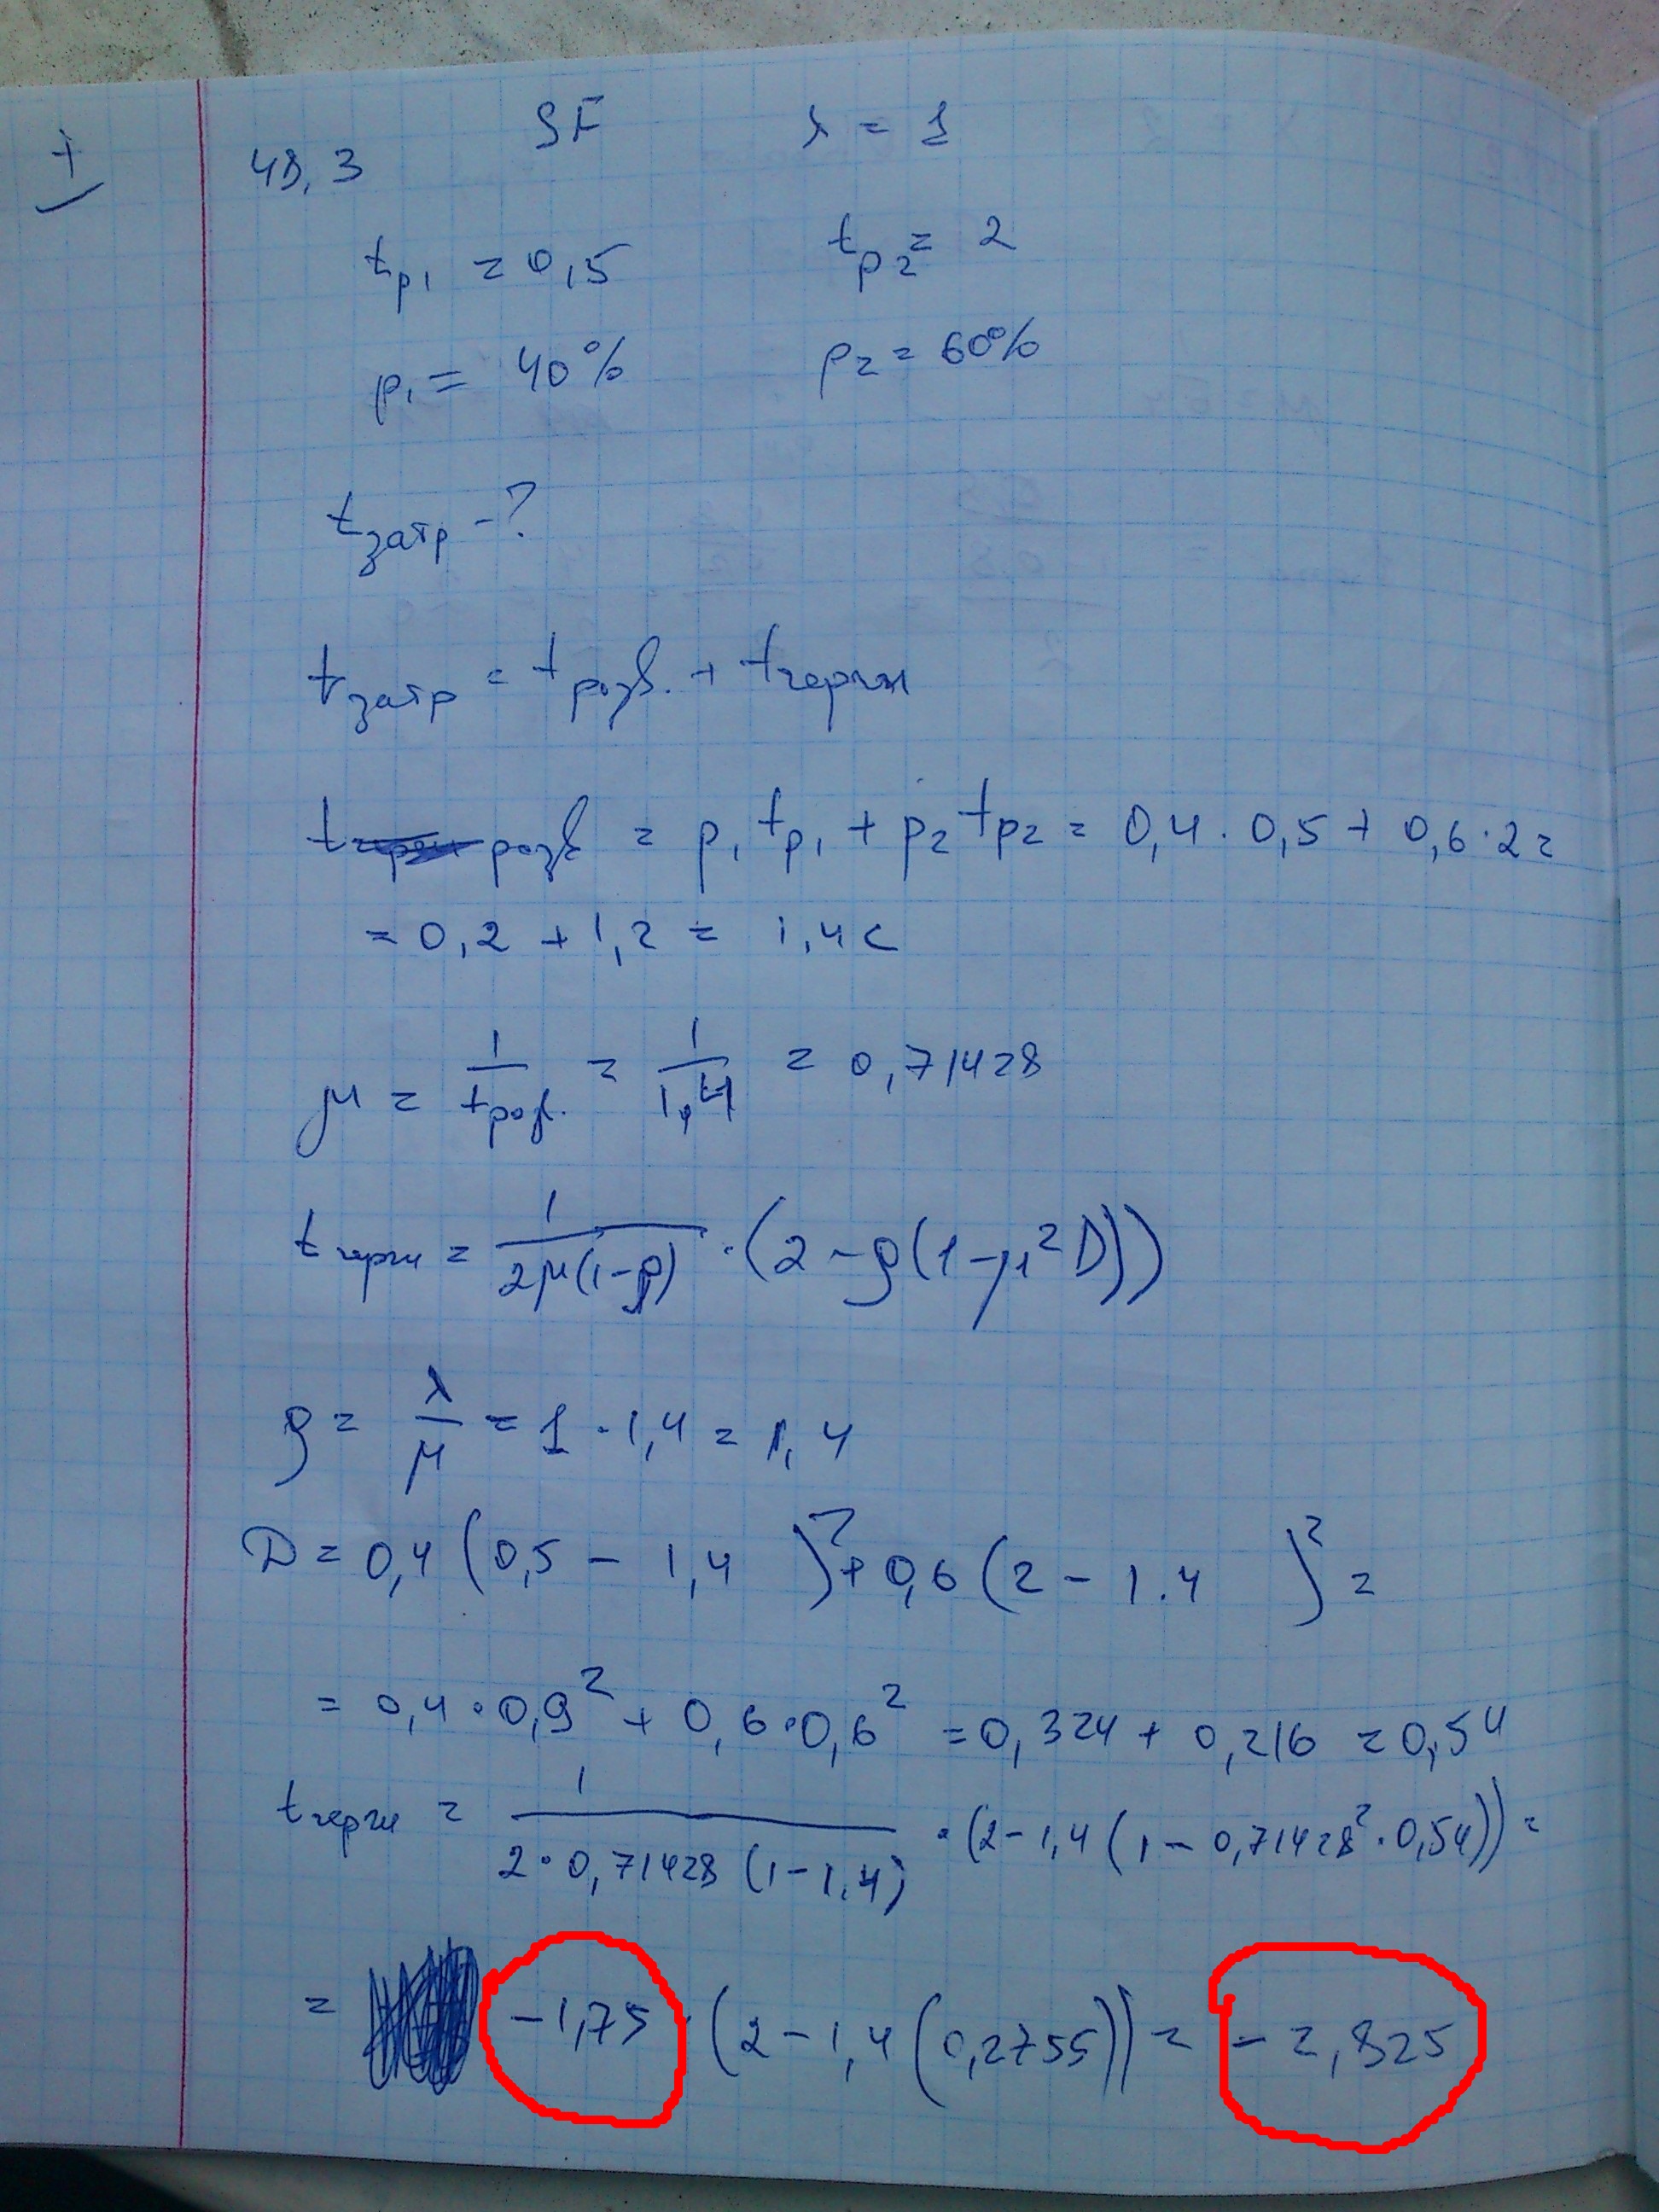 +
48,3 SF λ = 1
tp1 = 0,5 tp2 = 2
p1 = 40% p2 = 60%
tзатр - ?
tзатр = tрозв. + tчерги
tрозв = p1 tp1 + p2 tp2 = 0,4 · 0,5 + 0,6 · 2 =
= 0,2 + 1,2 = 1,4 c
μ = 1/tрозв. = 1/1,4 = 0,71428
tчерги = 1/(2μ(1-ρ)) · (2 - ρ(1-μ²D))
ρ = λ/μ = 1 · 1,4 = 1,4
D = 0,4 (0,5 - 1,4 )² + 0,6 (2 - 1.4 )² =
= 0,4 · 0,9² + 0,6 · 0,6² = 0,324 + 0,216 = 0,54
tчерги = 1/(2 · 0,71428 (1-1,4)) · (2 - 1,4 (1 - 0,71428² · 0,54)) =
= -1,75 · (2 - 1,4 (0,2755)) = -2,825